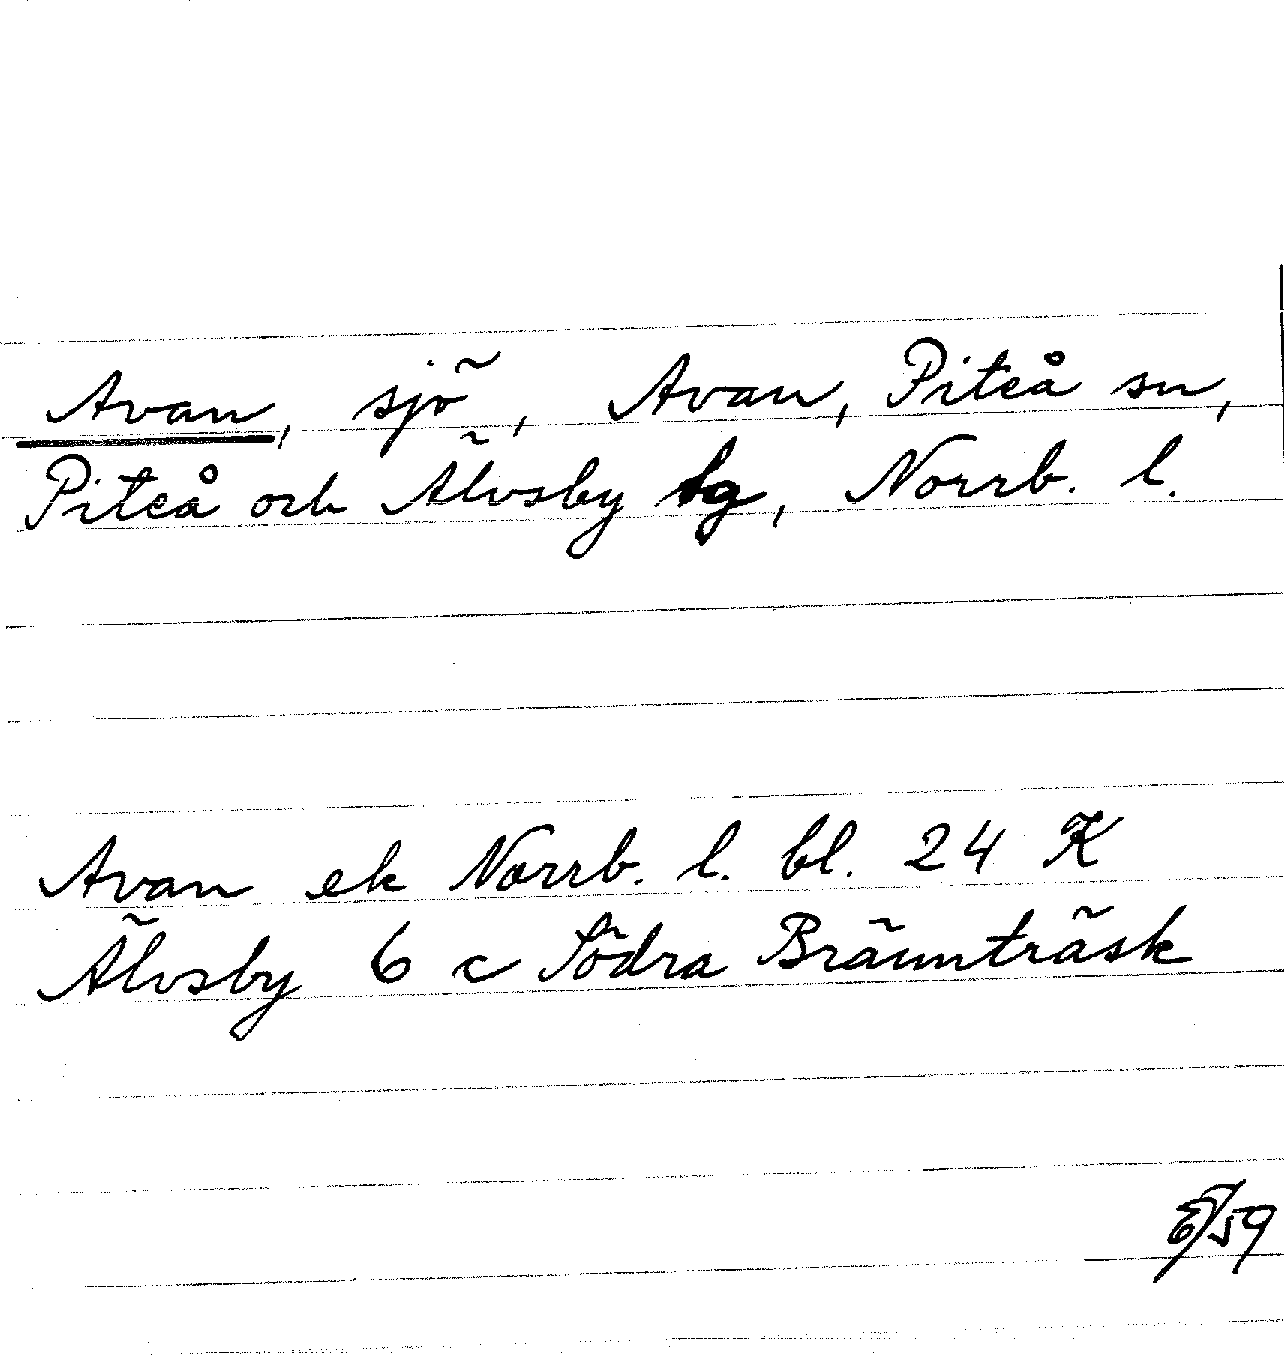 Avan, sjö, Avan, Piteå sn,
Piteå och Älvsby tg, Norrb. l.
Avan ek Norrb. l. bl. 24 K
Älvsby 6 c Södra Brännträsk